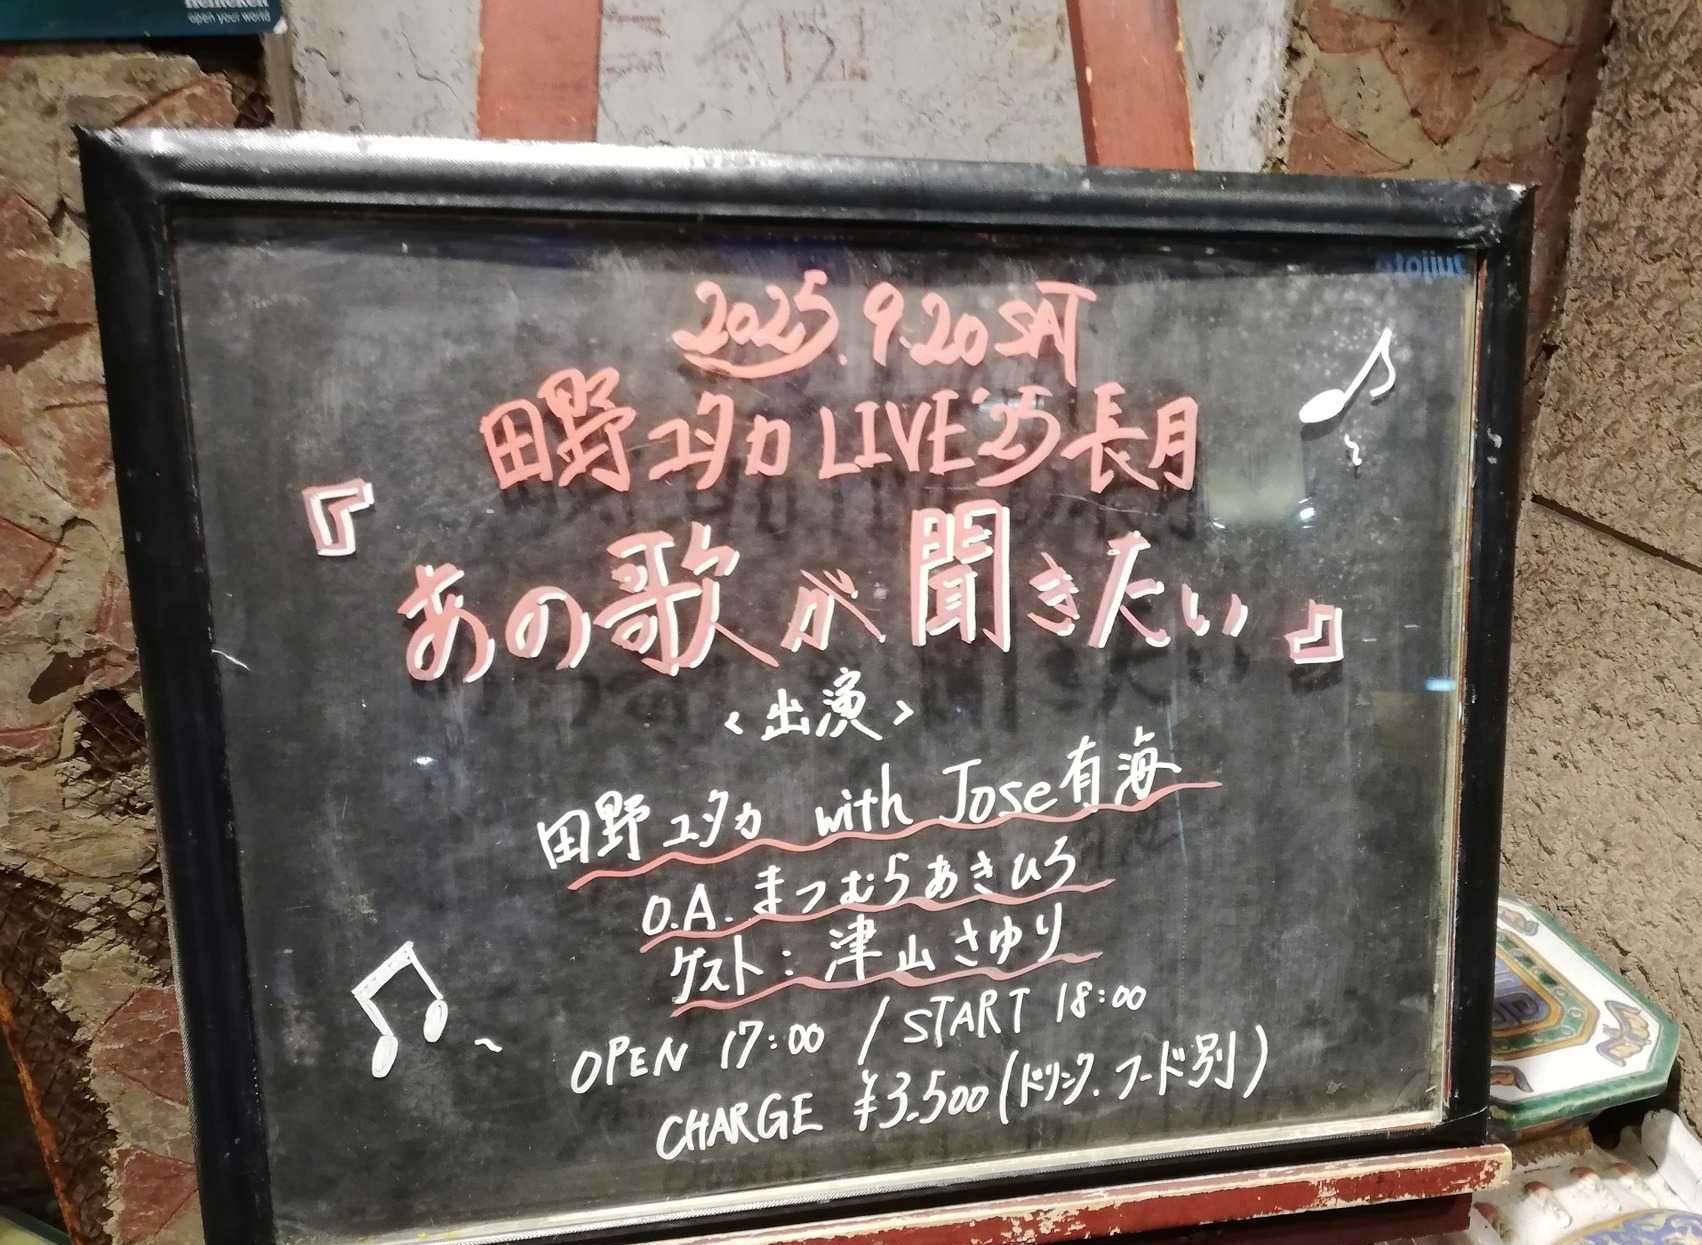 Heineken
open your world
2025.9.20 SAT
田野ユタカ LIVE'25 長月
『あの歌が聞きたい』
<出演>
田野ユタカ with Jose有海
O.A. まつむらあきひろ
ゲスト：津山さゆり
OPEN 17:00 / START 18:00
CHARGE ¥3.500(ドリンク.フード別)